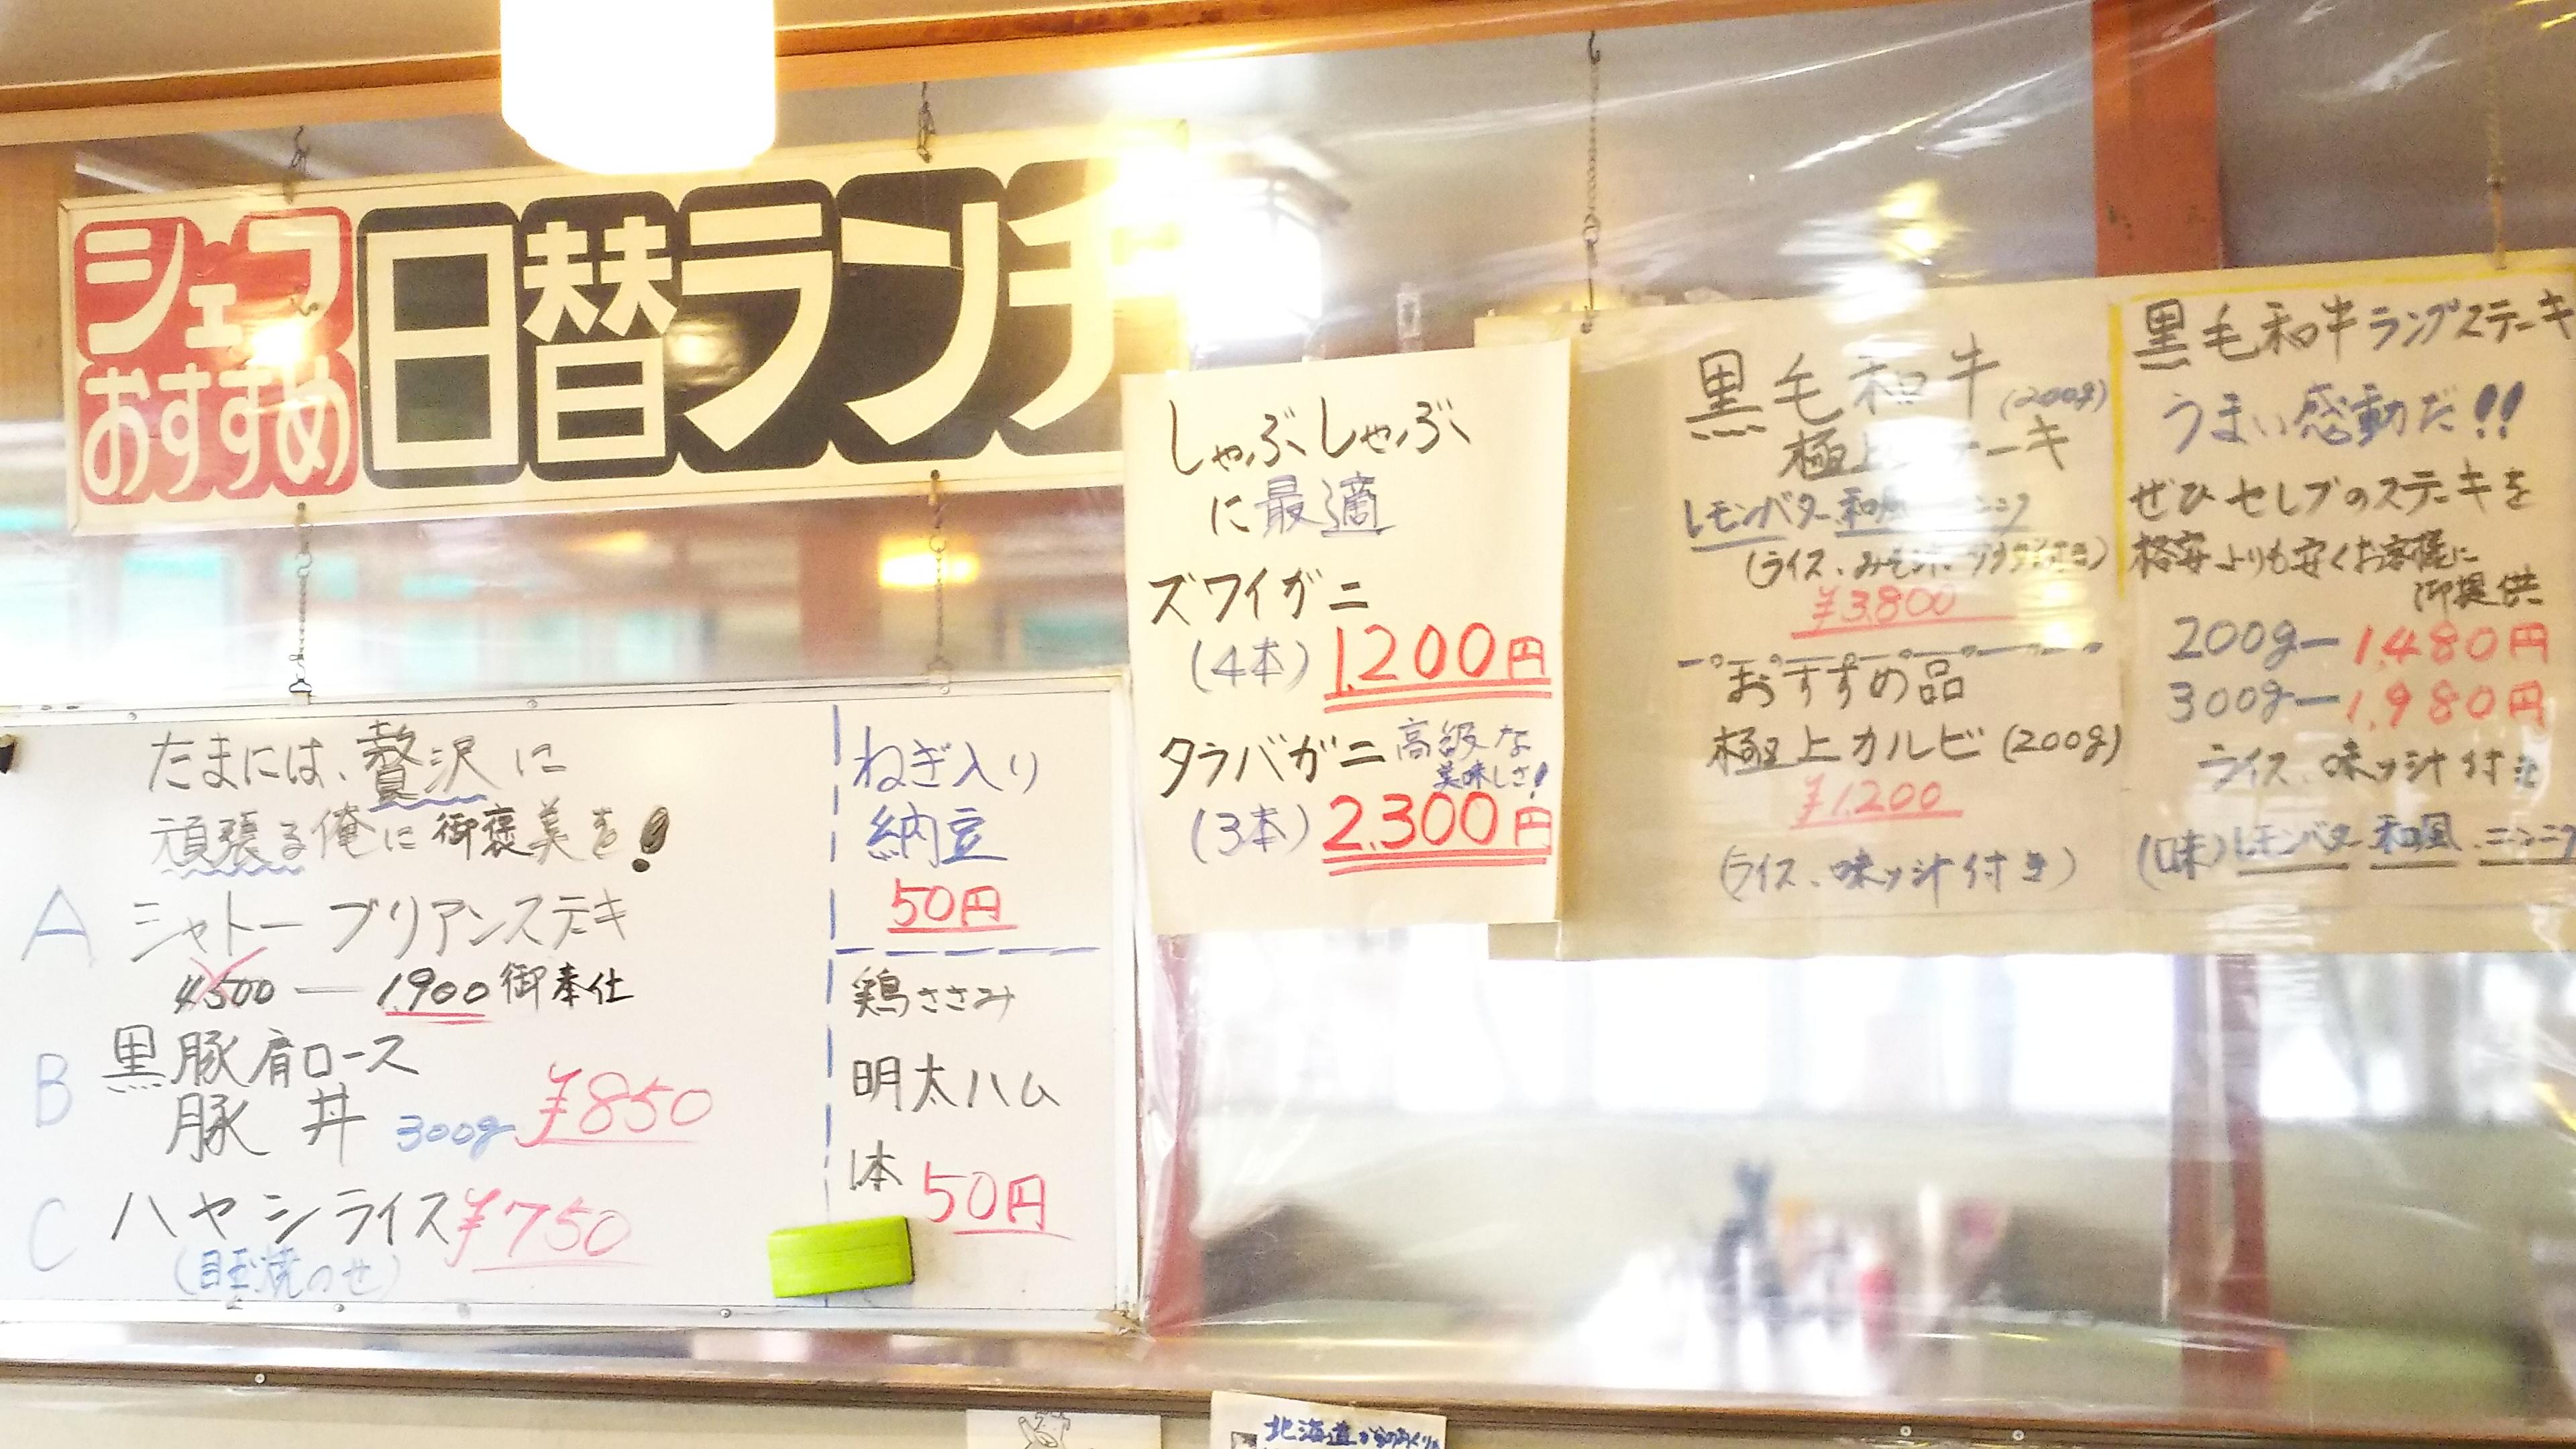 シェフ
おすすめ
日替ランチ
たまには、贅沢に
頑張る俺に御褒美を!
A シャトーブリアンステーキ
4500 — 1.900 御奉仕
B 黒豚肩ロース
豚丼 300g ¥850
C ハヤシライス ¥750
(目玉焼のせ)
ねぎ入り
納豆
50円
鶏ささみ
明太ハム
1本 50円
しゃぶしゃぶ
に最適
ズワイガニ
(4本) 1.200円
タラバガニ 高級な
美味しさ!
(3本) 2.300円
黒毛和牛
(200g)
極上ステーキ
レモンバター 和風 ニンニク
(ライス、みそ汁
¥3.800
おすすめ品
極上カルビ(200g)
¥1.200
(ライス、味ッ汁付き)
黒毛和牛ランプステーキ
うまい感動だ!!
ぜひセレブのステーキを
格安よりも安くお客様に
御提供
200g—1.480円
300g—1.980円
ライス、味ッ汁付き
(味)レモンバター 和風 ニンニク
北海道